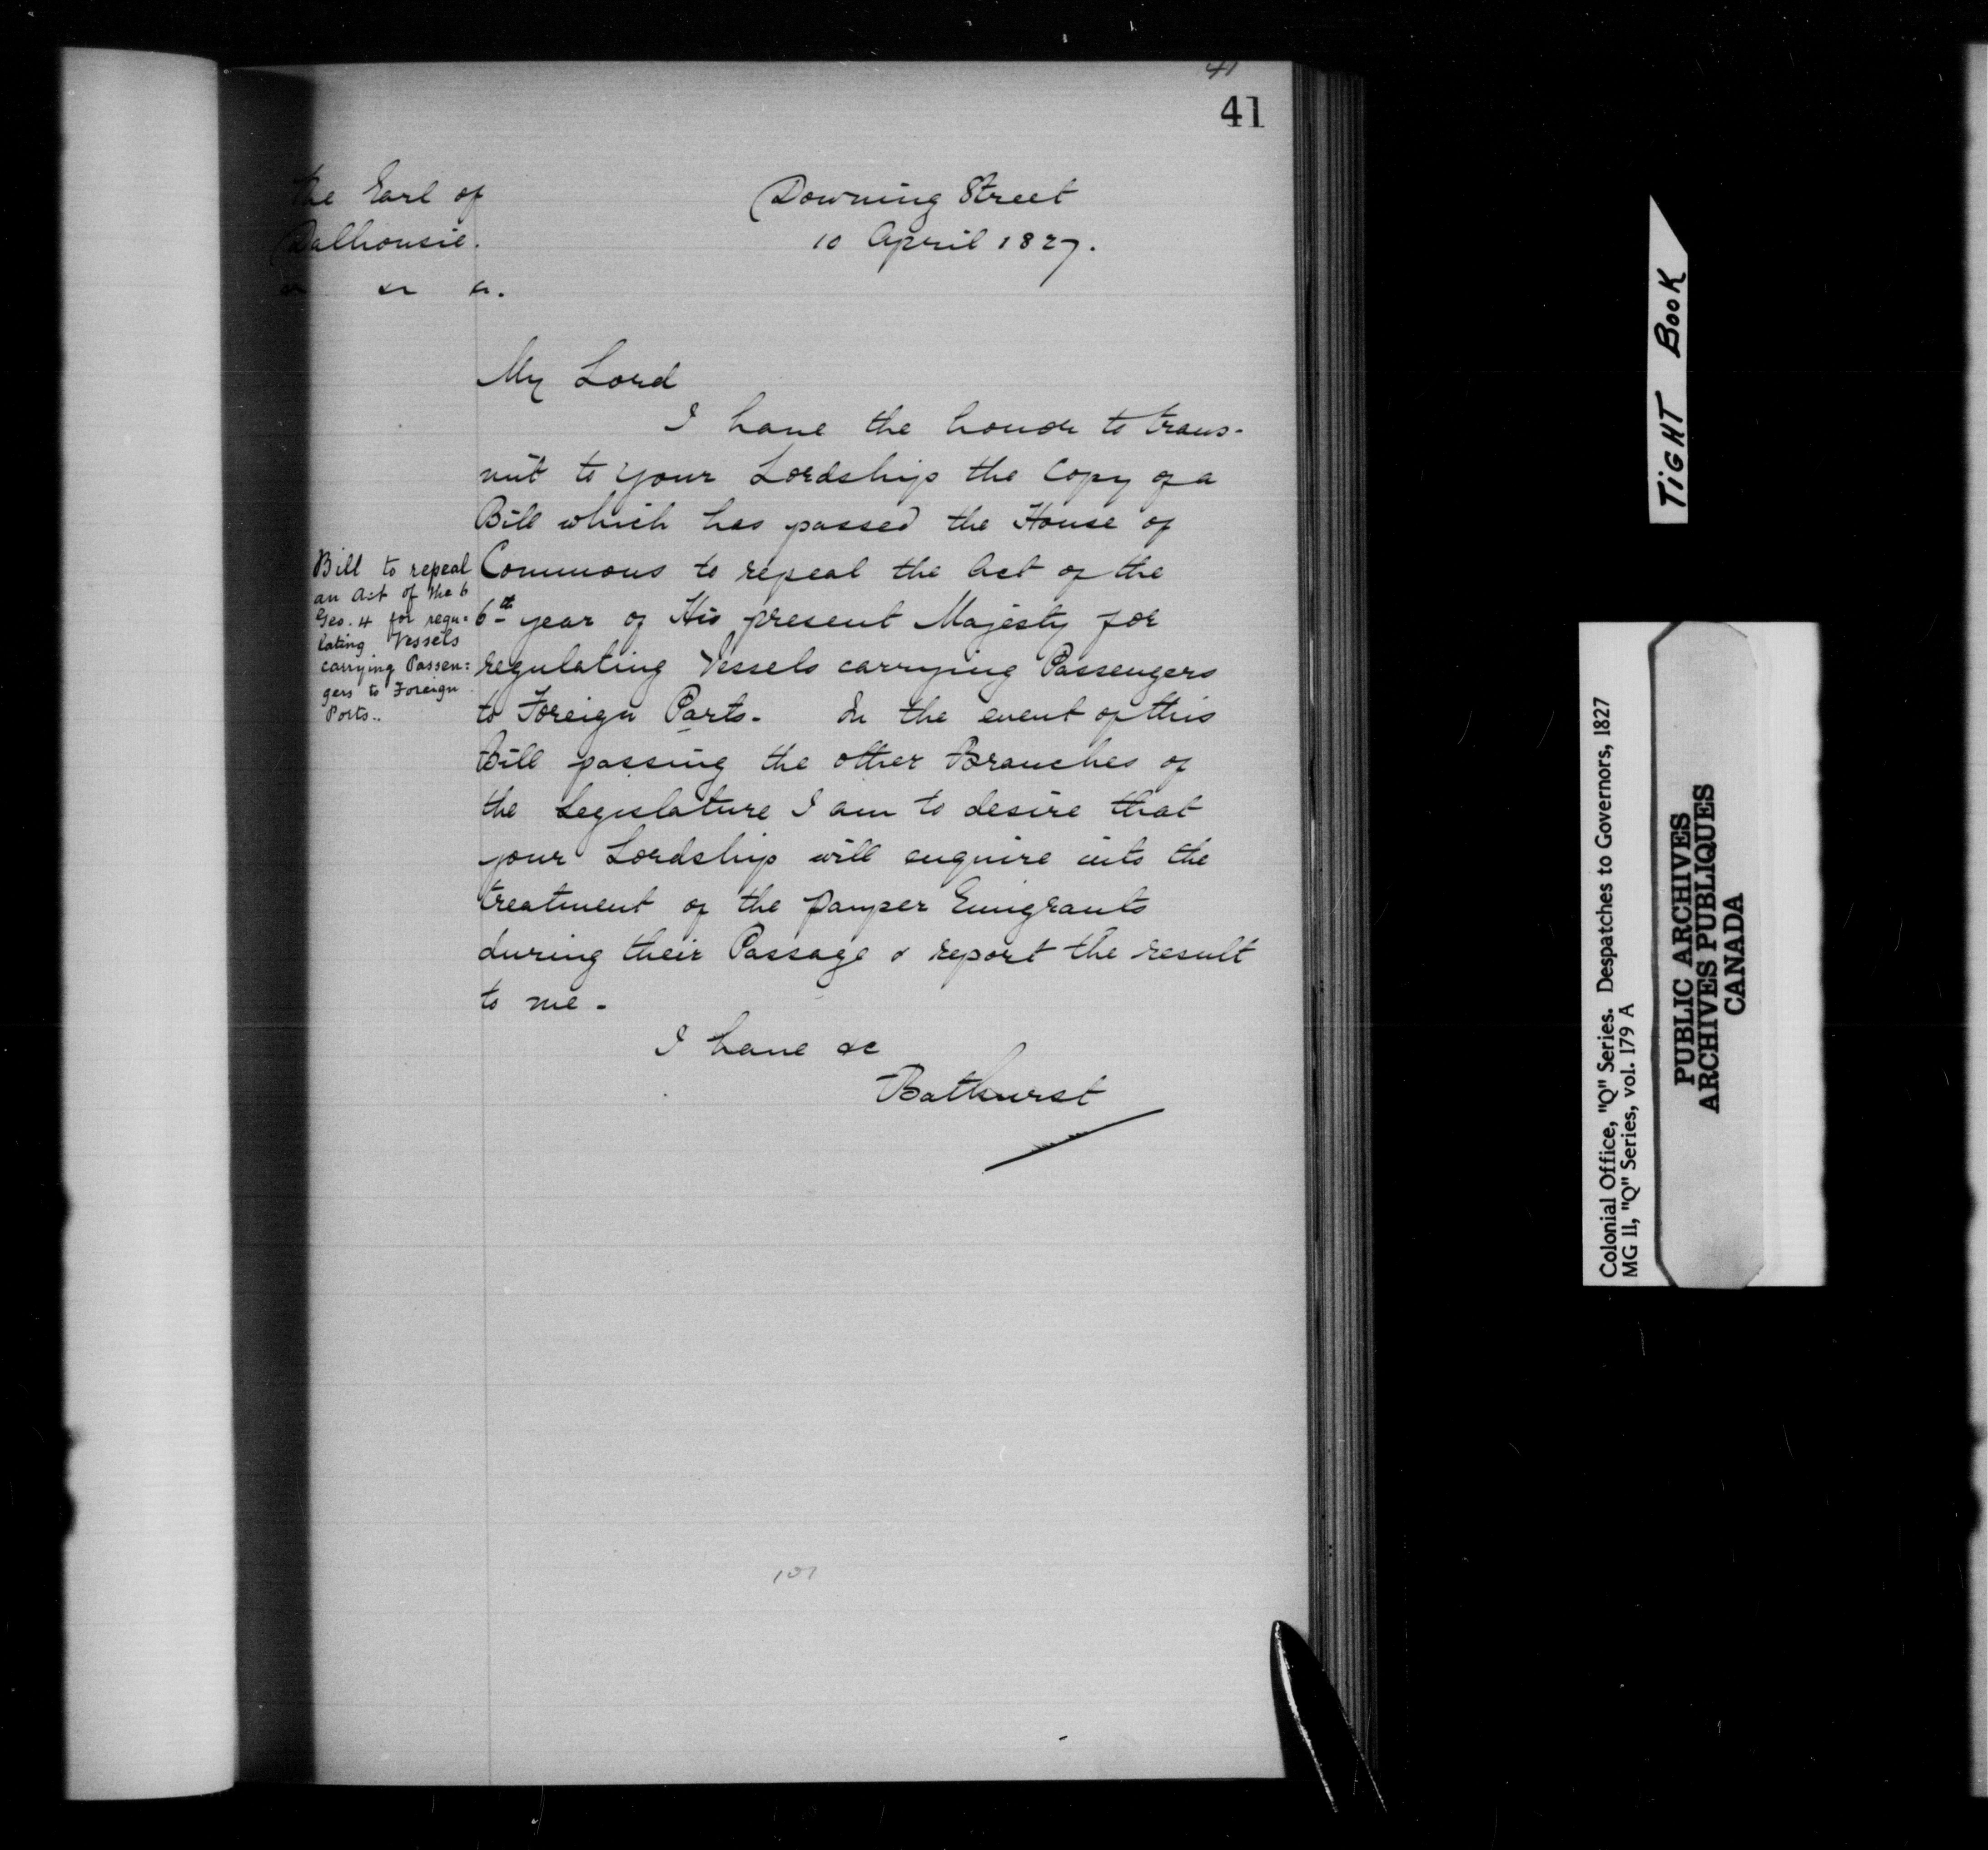 41
41
The Earl of
Dalhousie.
&c &c &c.
Downing Street
10 April 1827.
My Lord
I have the honor to trans-
mit to Your Lordship the Copy of a
Bill which has passed the House of
Commons to repeal the Act of the
6th year of His present Majesty for
regulating Vessels carrying Passengers
to Foreign Parts. In the event of this
Bill passing the other Branches of
the Legislature I am to desire that
your Lordship will enquire into the
treatment of the pauper Emigrants
during their Passage & report the result
to me.
I have &c
Bathurst
Bill to repeal
an Act of the 6
Geo. 4 for regu=
lating Vessels
carrying Passen=
gers to Foreign
Ports..
101
TIGHT BOOK
Colonial Office, "Q" Series. Despatches to Governors, 1827
MG 11, "Q" Series, vol. 179 A
PUBLIC ARCHIVES
ARCHIVES PUBLIQUES
CANADA